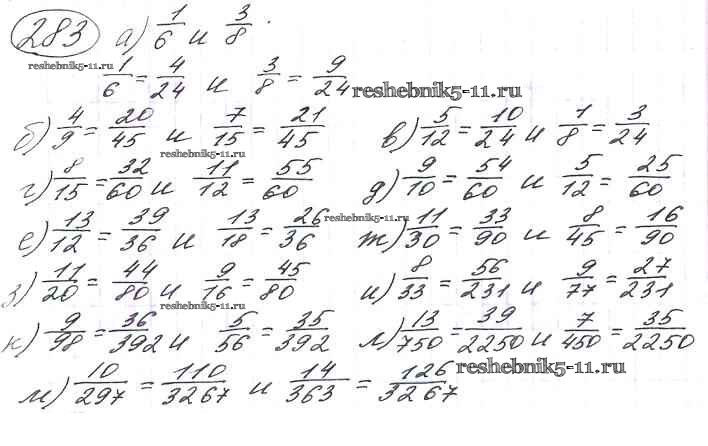 283 а) 1/6 и 3/8.
reshebnik5-11.ru
1/6 = 4/24 и 3/8 = 9/24
reshebnik5-11.ru
б) 4/9 = 20/45 и 7/15 = 21/45 в) 5/12 = 10/24 и 1/8 = 3/24
reshebnik5-11.ru
г) 8/15 = 32/60 и 11/12 = 55/60 д) 9/10 = 54/60 и 5/12 = 25/60
е) 13/12 = 39/36 и 13/18 = 26/36 ж) 11/30 = 33/90 и 8/45 = 16/90
reshebnik5-11.ru
з) 11/20 = 44/80 и 9/16 = 45/80 и) 8/33 = 56/231 и 9/77 = 27/231
reshebnik5-11.ru
к) 9/98 = 36/392 и 5/56 = 35/392 л) 13/750 = 39/2250 и 7/450 = 35/2250
м) 10/297 = 110/3267 и 14/363 = 126/3267
reshebnik5-11.ru